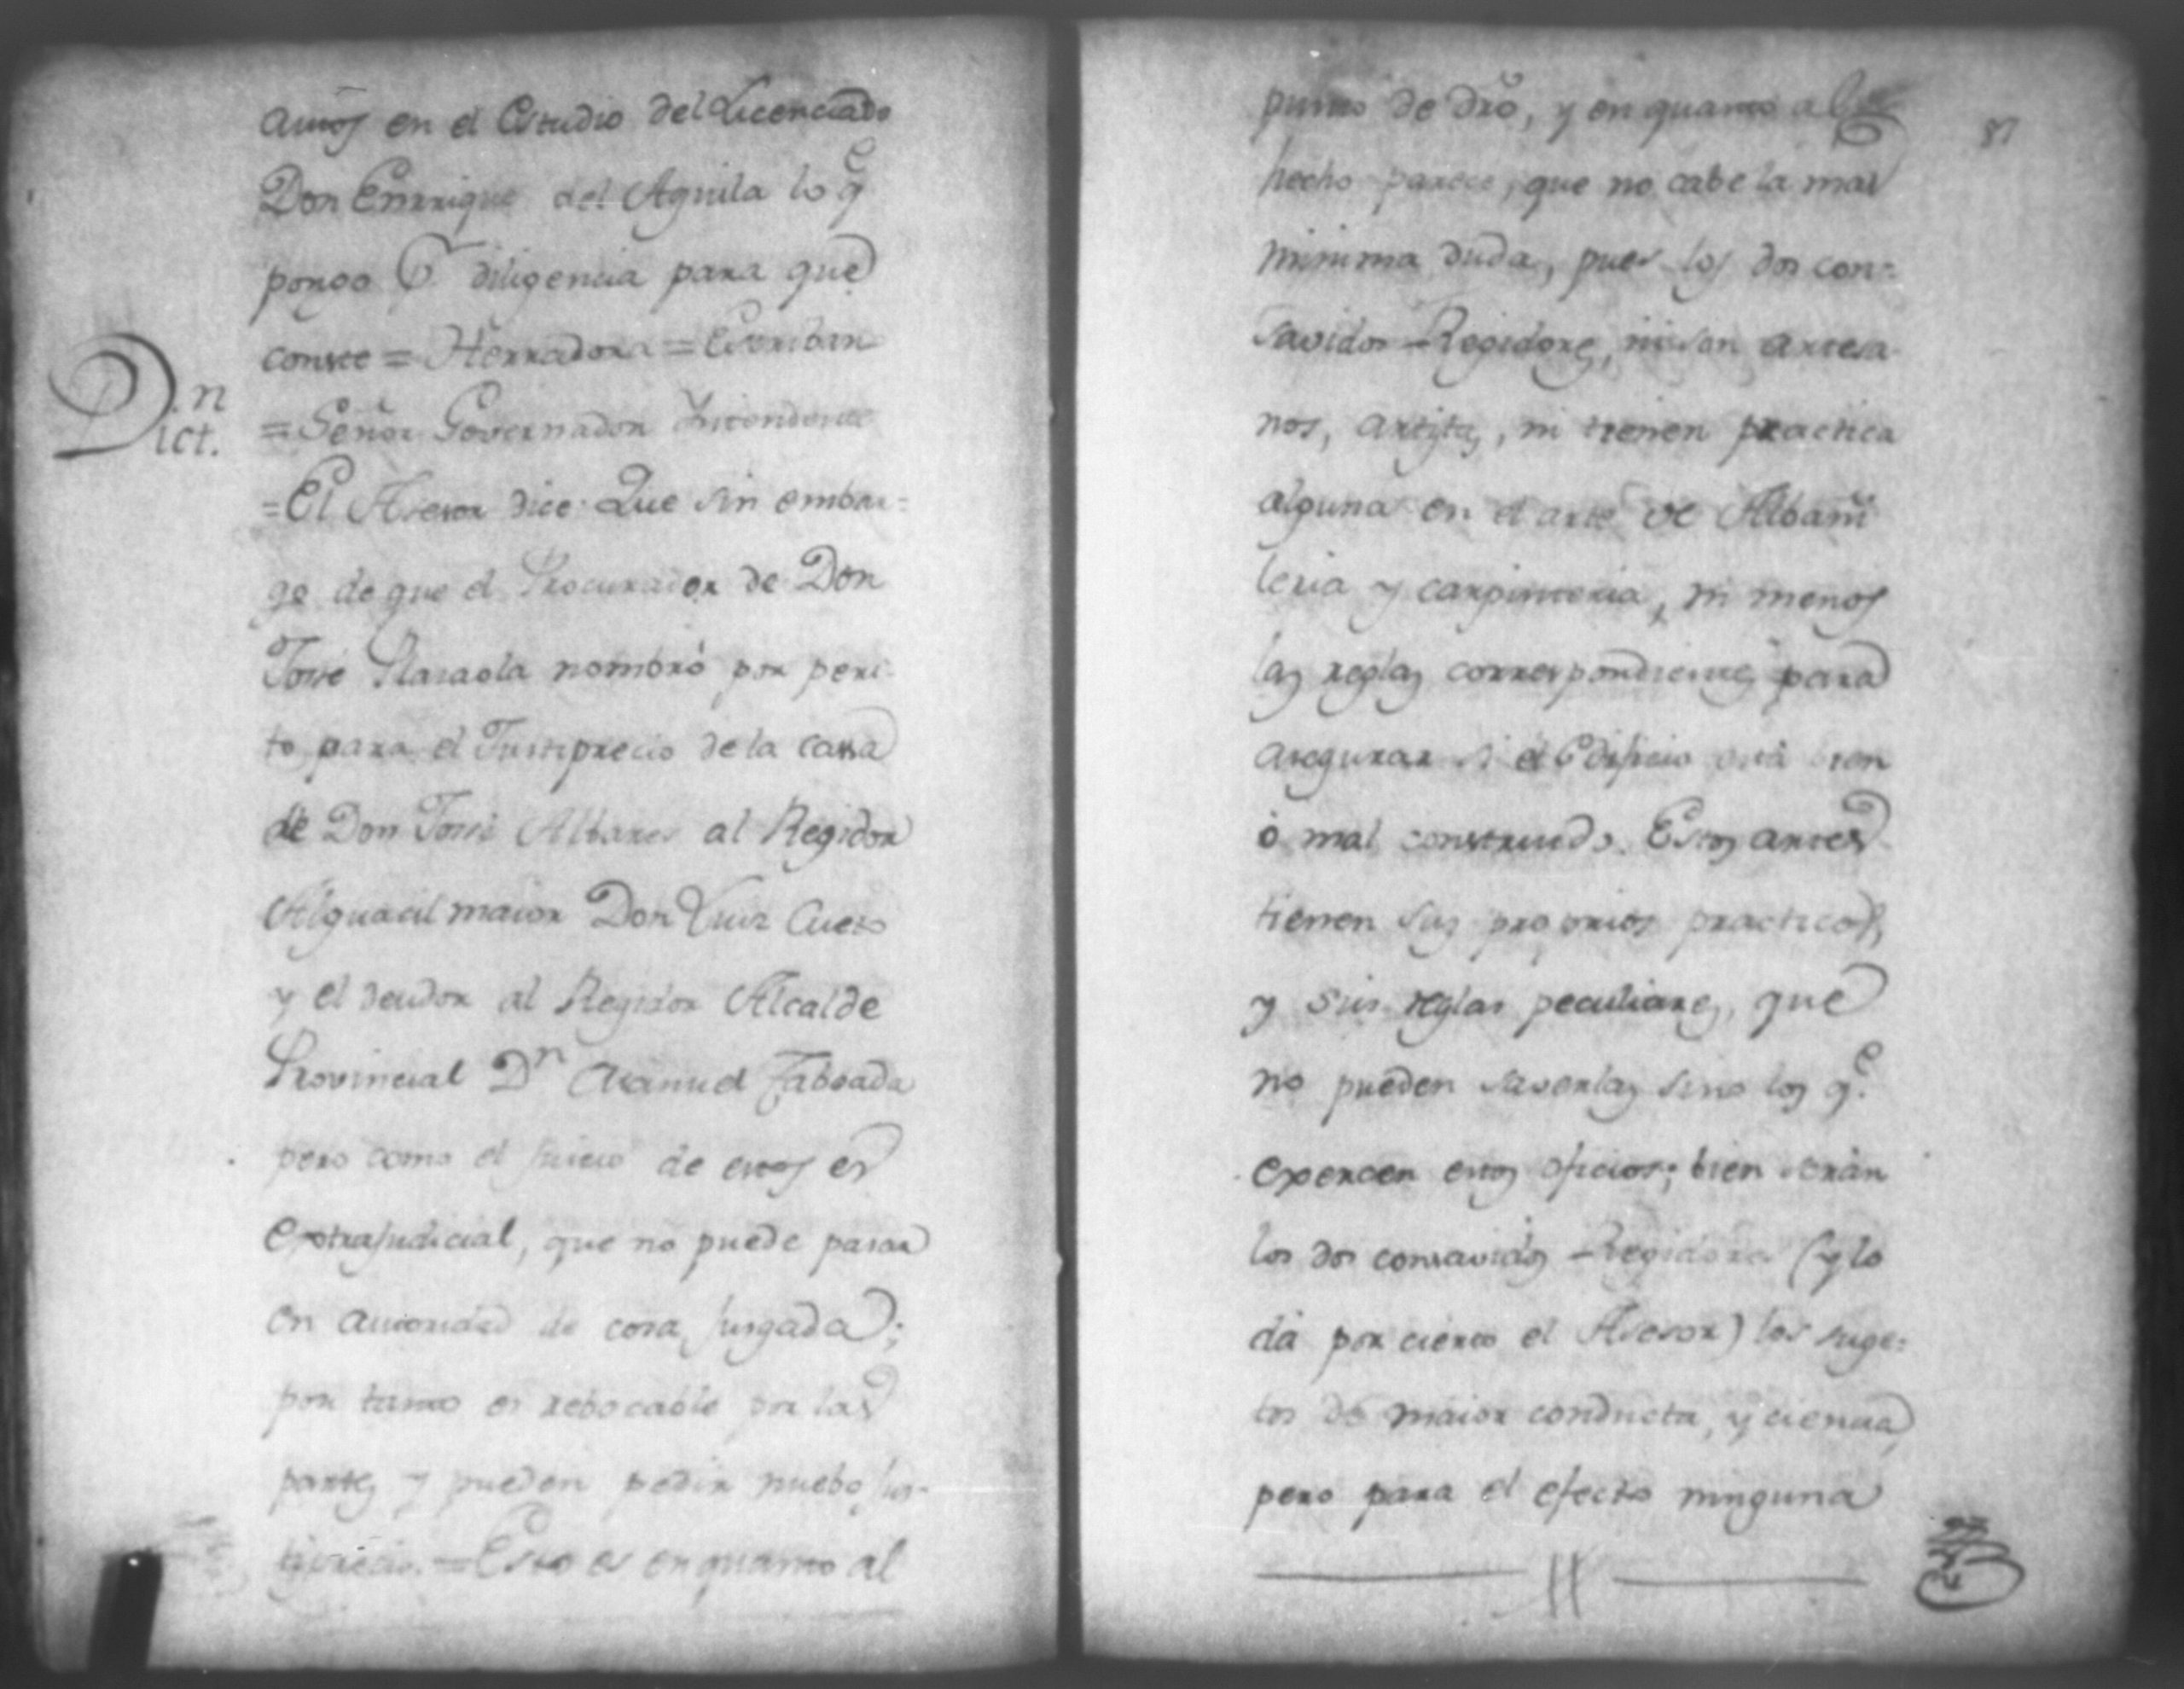 autos en el Estudio del Licenciado
Don Enrrique del Aguila lo q.e
pongo P.r diligencia para que
conste = Herradora = Escriban
Dict.n
= Señor Governador Intendente
= El Asesor dice. Que sin embar=
go de que el Procurador de Don
José Ilaraola nombró por peri-
to para el Justiprecio de la cassa
de Don José Albares al Regidor
Alguacil maior Don Luis Cueto
y el deudor al Regidor Alcalde
Provincial Dn Manuel Taboada
pero como el juicio de estos es
extrajudicial, que no puede pasar
en autoridad de cosa jusgada;
por tanto es rebocable por las
partes y pueden pedir nuebo jus-
tiprecio. = Esto es en quanto al
87
punto de dro, y en quanto al
hecho parece, que no cabe la mas
minima duda, pues los dos con=
savidos Regidores, ni son artesa
nos, artistas, ni tienen practica
alguna en el arte de Albañi
leria y carpinteria, ni menos
las reglas correspondientes para
asegurar si el Edificio está bien
ó mal construido. Estos artes
tienen sus proprios practicos,
y sus reglas peculiares, que
no pueden saverlas sino los q.e
exercen estos oficios; bien serán
los dos consavidos Regidores (y lo
dá por cierto el Asesor) los suge=
tos de maior conducta, y ciencia,
pero para el efecto ninguna